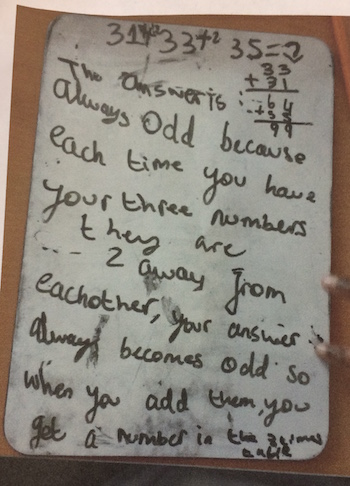 31+2 33+2 35=→
33
+ 31
64
+ 35
99
The answer is:
always Odd because
each time you have
your three numbers
they are
.... 2 away from
eachother, your answer is
always becomes odd so
when you add them, you
get a number in the 3 times
table